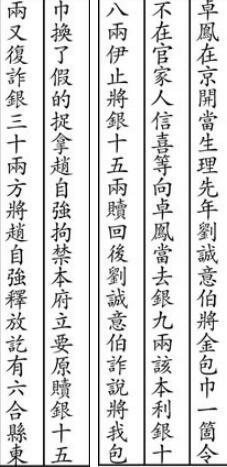 卓鳳在京開當生理先年劉誠意伯將金包巾一箇令
不在官家人信喜等向卓鳳當去銀九兩該本利銀十
八兩伊止將銀十五兩贖回後劉誠意伯詐說將我包
巾換了假的捉拿趙自強拘禁本府立要原贖銀十五
兩又復詐銀三十兩方將趙自強釋放訖有六合縣東